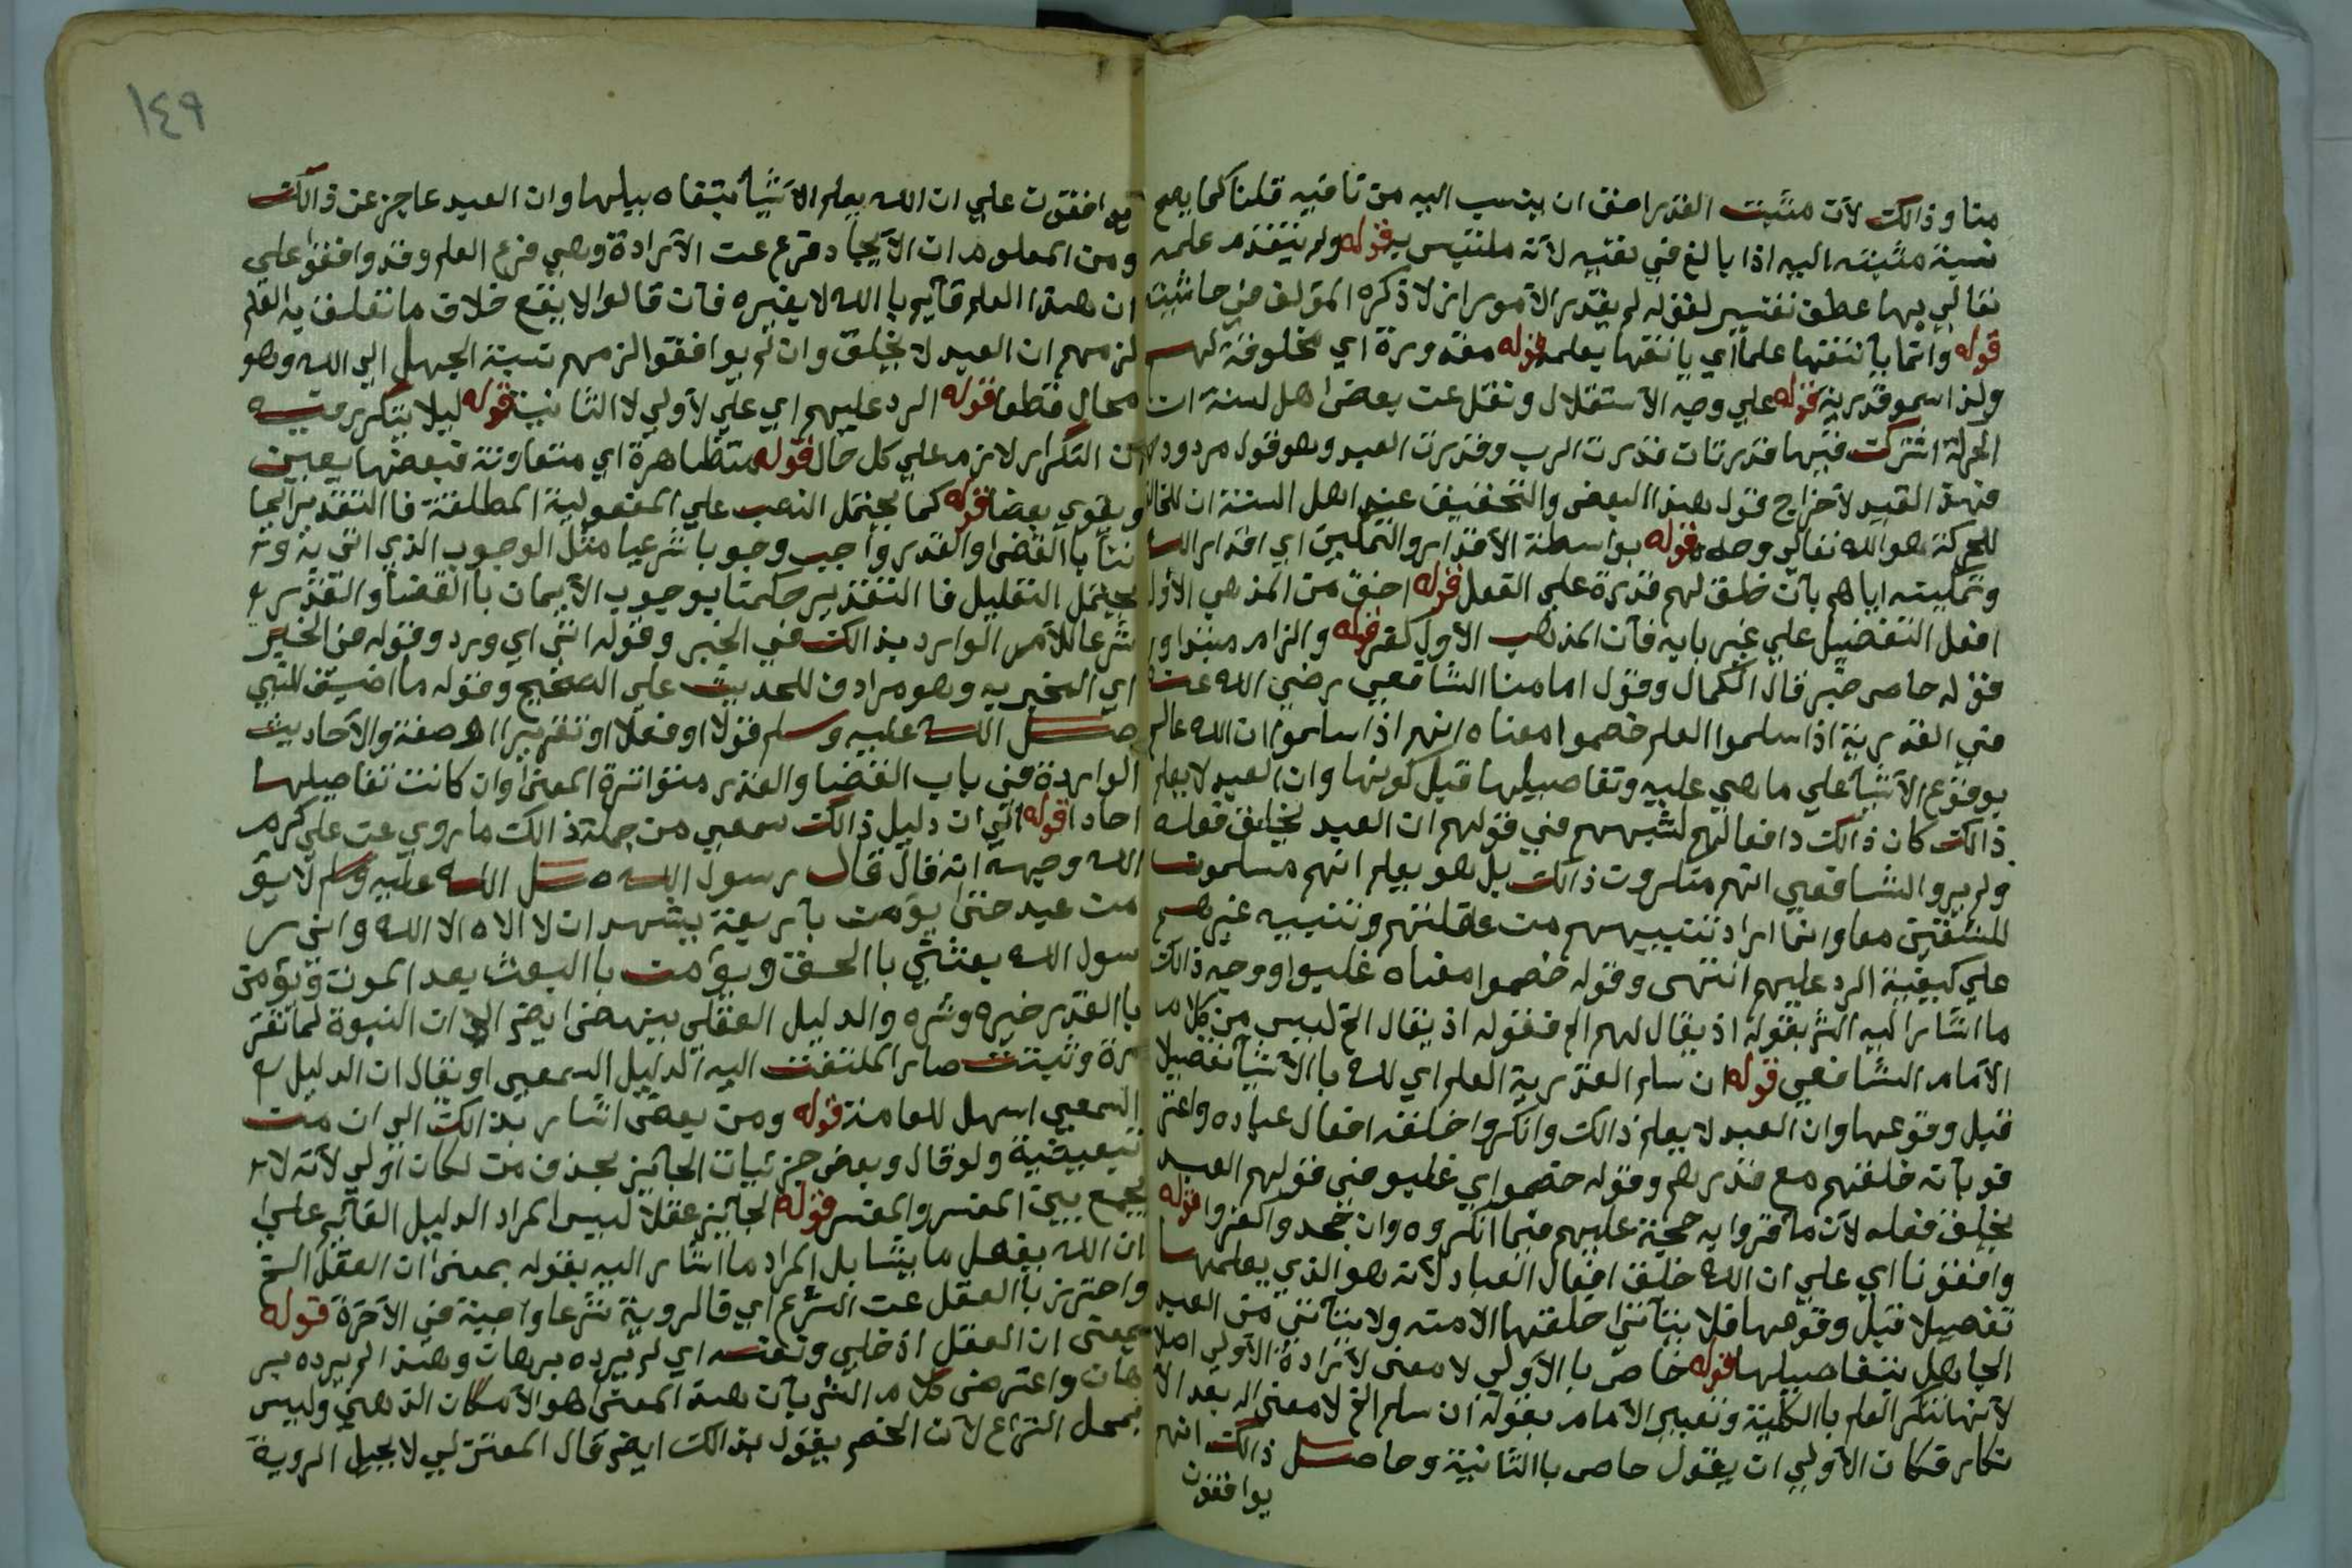 منا وذالك لان مثبت القدر احق ان ينسب اليه من نافيه قلنا كما يصح
نسبة مثبته اليه اذا بالغ في نفيه لانه ملتبس به قوله ولم يتقدم علمه
تعالي بها عطف تفسير لقوله لم يقدر الامور ازلا ذكره المولف في حاشيته
قوله وانما ياتنفها علما اي ياتنفها بعلمه قوله مقدورة اي مخلوقة لهم
ولذا سمو قدرية قوله علي وجه الاستقلال ونقل عن بعض اهل لسنة ان
الحركة اشتركت فيها قدرتان قدرت الرب وقدرت العبد وهو قول مردود
فهذا القيد لاخراج قول هذا البعض والتحقيق عند اهل السنة ان الخالق
للحركة هو الله تعالي وحده قوله بواسطة الاقدار والتمكين اي اقدار الله
وتمكينه اياهم بان خلق لهم قدرة علي الفعل قوله احق من المذهب الاول
افعل التفضيل علي غير بابه فان المذهب الاول كفر قوله والزام مبتدا و
قوله حاصر خبر قال الكمال وقول امامنا الشافعي رضي الله عنه
في القدرية اذا سلموا العلم خصموا معناه انهم اذا سلموا ان الله عالم
بوقوع الاشيا علي ما هي عليه وتفاصيلها قبل كونها وان العبد لا يعلم
ذالك كان ذالك دافعا لهم لشبههم في قولهم ان العبد يخلق فعله
ولم يرو الشافعي انهم منكرون ذالك بل هو يعلم انهم مسلمون
للشقين معا وانما اراد تنبيههم من غفلتهم وتنبيه غيرهم
علي كيفية الرد عليهم انتهى وقوله خصموا معناه غلبوا ووجه ذالك
ما اشار اليه الش بقوله اذ يقال لهم الخ فقوله اذ يقال الخ ليس من كلام
الامام الشافعي قوله ان سلم القدرية العلم اي لله بالاشيا تفصيلا
قبل وقوعها وان العبد لا يعلم ذالك وانكروا خلقه افعال عباده واعتر
فو بانه خلقهم مع قدرهم وقوله خصموا اي غلبو في قولهم العبد
يخلق فعله لان ما قروا به حجة عليهم فيما انكروه وان جحد واكفروا قوله
وافقونا اي علي ان الله خلق افعال العباد لانه هو الذي يعلمها
تفصيلا قبل وقوعها فلا يتاتى خلقها الا منه ولا يتاتي من العبد
الجاهل بتفاصيلها قوله خاص بالاولي لا معنى لارادة الاولي اصلا
لانها تنكر العلم بالكلية وتعبير الامام بقوله ان سلم الخ لا معنى له بعد الا
نكار فكان الاولي ان يقول خاص بالثانية وحاصل ذالك انهم
يوافقون
يوافقون علي ان الله يعلم الاشيا بتفاصيلها وان العبد عاجز عن ذالك
ومن المعلوم ان الايجاد فرع عن الارادة وهي فرع العلم وقد وافقوا علي
ان هذا العلم قايم بالله لا بغيره فان قالوا لا يقع خلاف ما تعلق به العلم
لزمهم ان العبد لا يخلق وان لم يوافقوا لزمهم نسبة الجهل الي الله وهو
محال قطعا قوله الرد عليهم اي علي الاولي لا الثانية قوله ليلا يتكرر فيه
ان التكرار لازم علي كل حال قوله متظاهرة اي متعاونة فبعضها يعين
ويقوي بعضا قوله كما يحتمل النصب علي المفعولية المطلقة فالتقدير ايما
ننا بالقضا والقدر واجب وجوبا شرعيا مثل الوجوب الذي اتي به و
يحتمل التعليل فالتقدير حكمنا بوجوب الايمان بالقضا والقدر
شرعا للامر الوارد بذالك في الخبر وقوله اتي اي ورد وقوله في الخبر
اي المخبر به وهو مرادف للحديث علي الصحيح وقوله ما اضيف للنبي
صلى الله عليه وسلم قولا او فعلا او تقريرا او صفة والاحاديث
الواردة في باب القضا والقدر متواترة المعنى وان كانت تفاصيلها
احادا قوله اي ان دليل ذالك سمعي من جملة ذالك ما روي عن علي كرم
الله وجهه انه قال قال رسول الله صلى الله عليه وسلم لا يؤ
من عبد حتى يؤمن باربعة يشهد ان لا الاه الا الله واني ر
سول الله بعثني بالحق ويؤمن بالبعث بعد الموت ويؤمن
بالقدر خيره وشره والدليل العقلي ينهض ايض الا ان النبوة لما تقر
رة وثبتت صار الملتفت اليه الدليل السمعي او يقال ان الدليل
السمعي اسهل للعامة قوله ومن بعض اشار بذالك الي ان من
تبعيضية ولو قال وبعض جزئيات الجايز بحذف من لكان اولي لانه لا
يجمع بين المفسر والمفسر قوله الجايز عقلا ليس المراد الدليل القايم علي
ان الله يفعل ما يشا بل المراد ما اشار اليه بقوله بمعنى ان العقل الخ
واحترز بالعقل عن الشرع اي فالروية شرعا واجبة في الاخرة قوله
بمعنى ان العقل اذ خلي ونفسه اي لم يرده برهان وهذا لم يرده بر
هان واعترض كلام الش بان هذا المعنى هو الامكان الذهني وليس
بمحل النزاع لان الخصم يقول بذالك ايض قال المعتزلي لا يحيل الروية
١٤٩